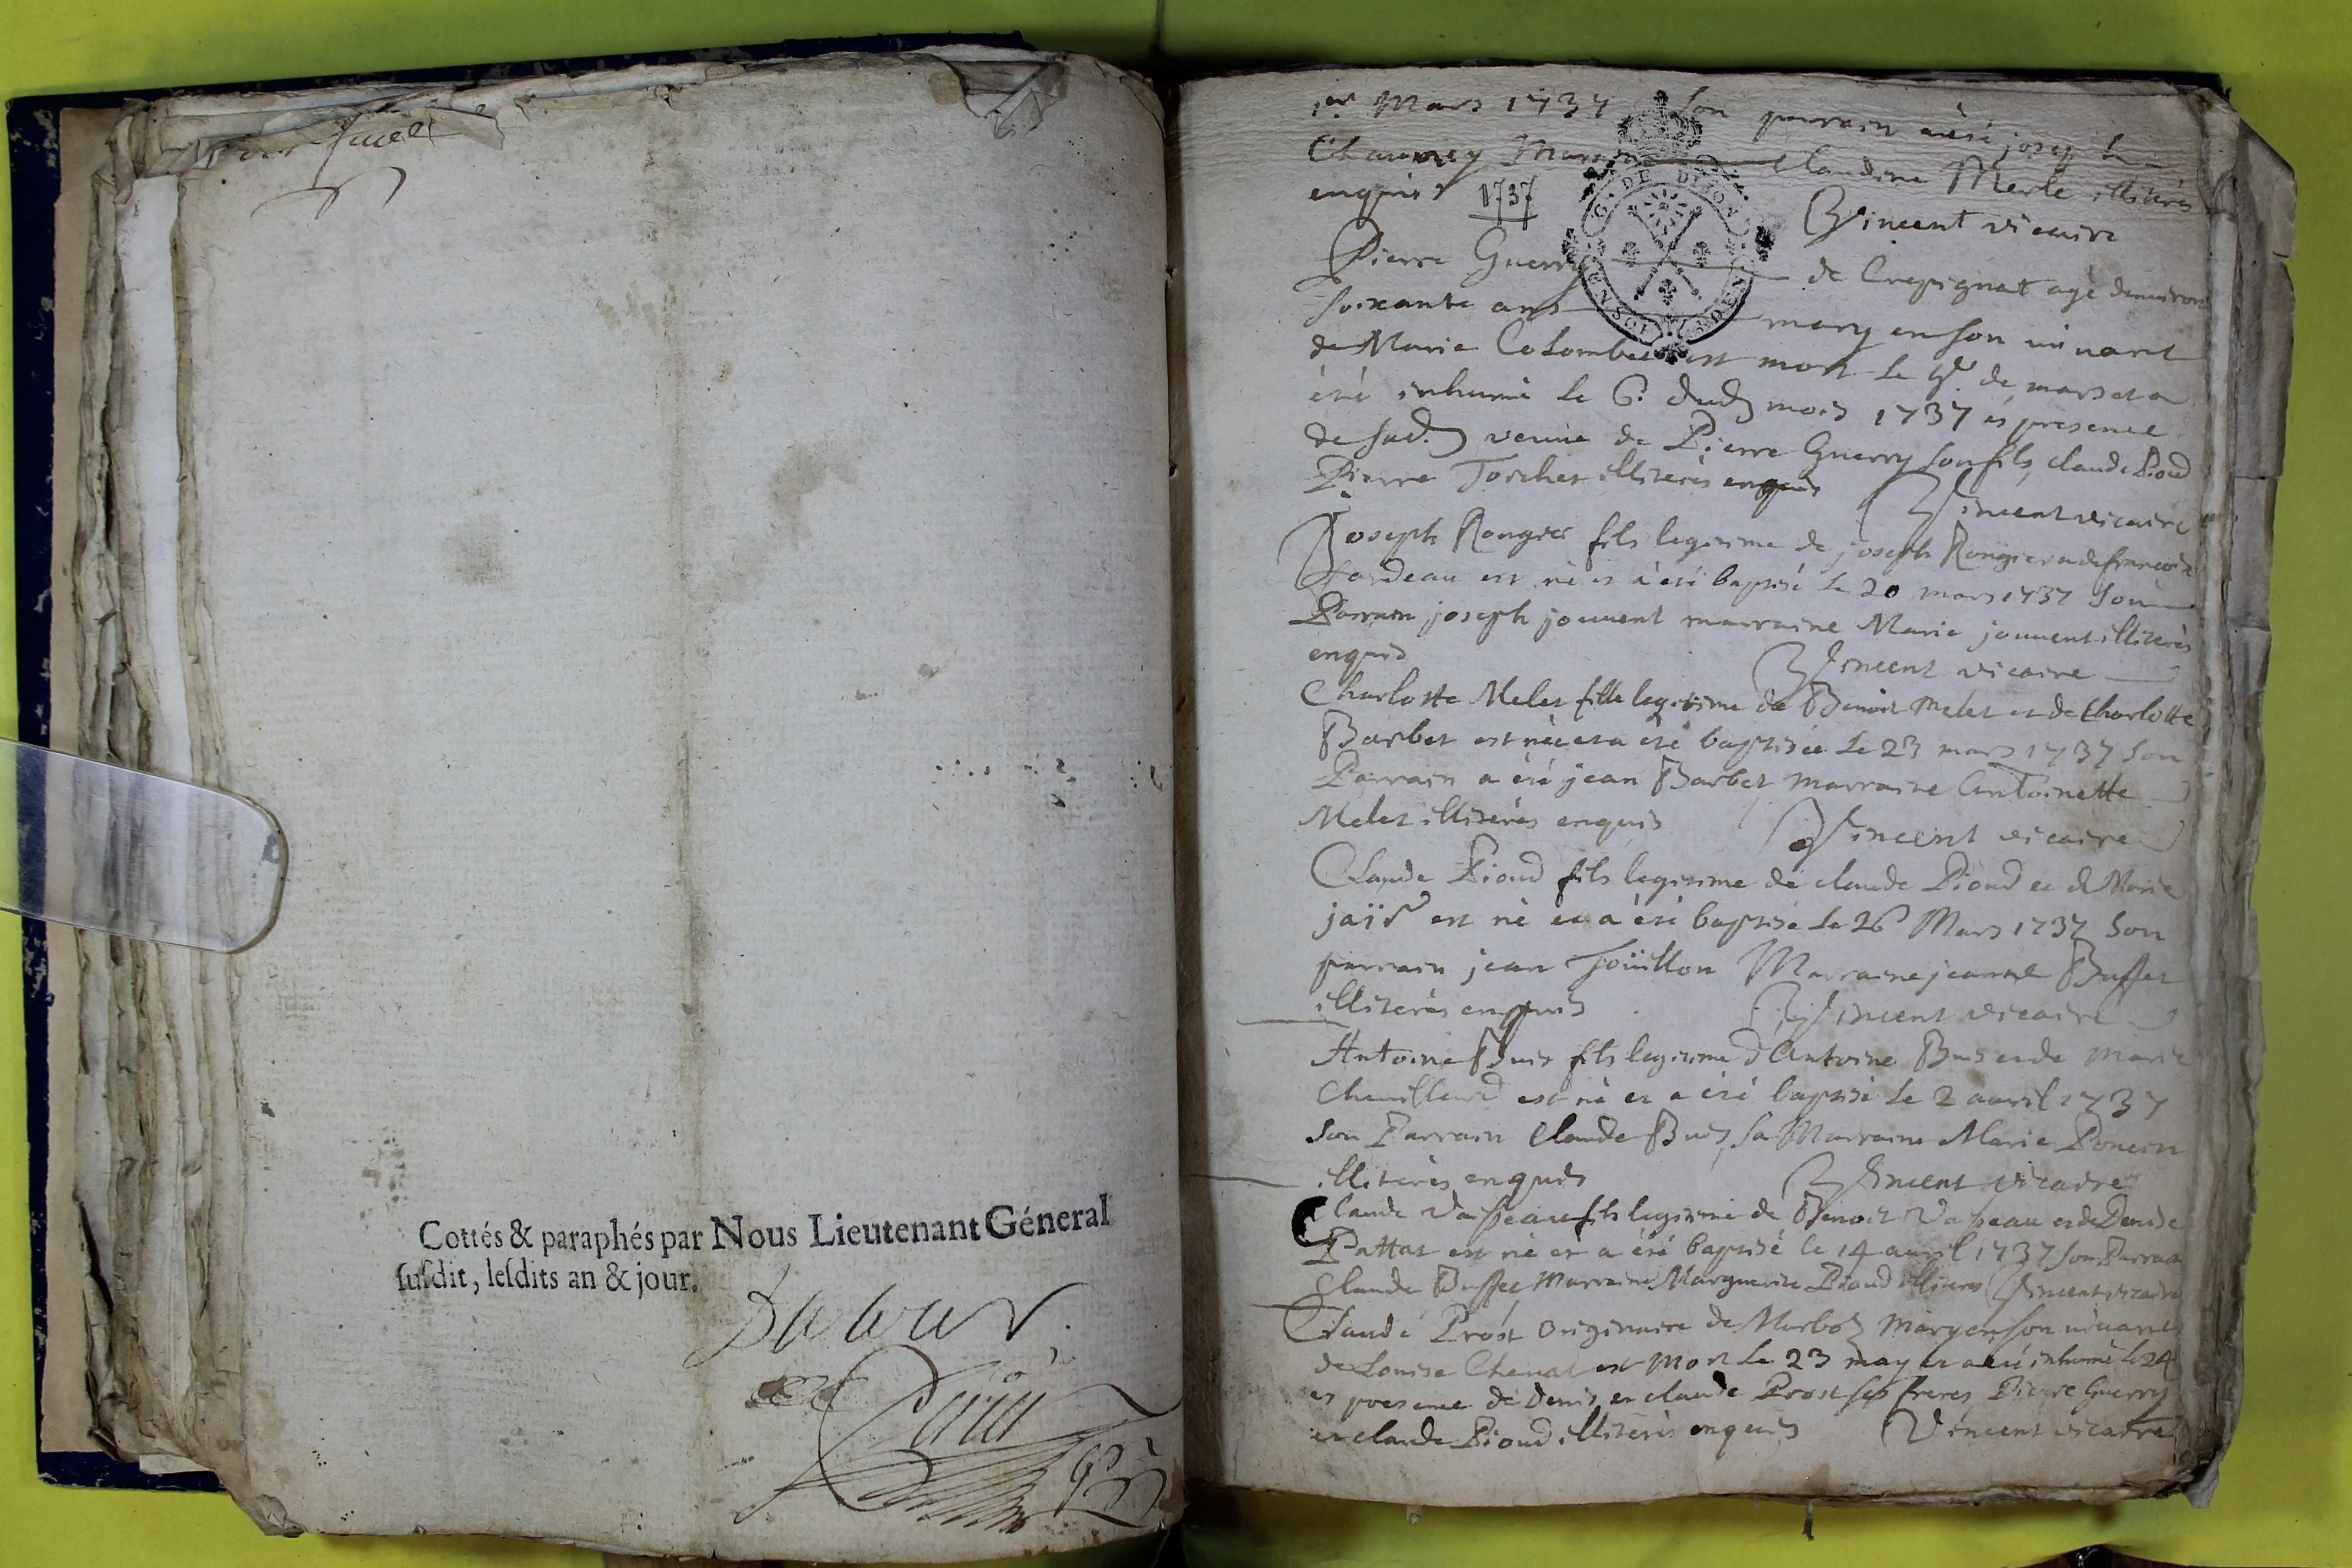 Cottés & paraphés par Nous Lieutenant Géneral
ſuſdit, leſdits an & jour.
1er Mars 1737 son parrain a été joseph
Chauney Marraine Claudine Merle illiterés
enquis 1737 Vincent vicaire
G. DE DIJON
Pierre Guerry de Crepignat agé denviron
soixante ans mary en son vivant
de Marie Colombet est mort le de mars et a
été inhumé le 6. dud mois 1737 es presence
de sad. veuve de Pierre Guerry son fils, claude Pioud
Pierre Torchet illiterés enquis Vincent vicaire
Joseph Rongier fils legitime de joseph Rongier et de francoise
Tardeau est né et a été baptisé le 20 mars 1737 son
Parrain joseph jouvent marraine Marie jouvent illiterés
enquis Vincent vicaire
Charlotte Melet fille legitime de Benoit Melet et de Charlotte
Barbet est née et a été baptisée le 23 mars 1737 son
Parrain a été jean Barbet marraine Antoinette
Melet illiterés enquis Vincent vicaire
Claude Pioud fils legitime de claude Pioud et d Marie
est né et a été baptisé le 26 Mars 1737 son
parrain jean Joüillon Marraine jeanne Buffet
illiterés enquis Vincent vicaire
Antoine Buis fils legitime d'Antoine Buis et de Marie
Chevillard est né et a été baptisé le 2 avril 1737
son Parrain Claude Buis, sa Marraine Marie Poncin
illiterés enquis Vincent vicaire
Claude Vaspeau fils legitime de Benoit Vaspeau et de Denise
Pattat est né et a été baptisé le 14 avril 1737 son Parrain
Claude Buffet Marraine Marguerite Pioud illiteres Vincent vicaire
Claude Prost Originaire de Marboz mary en son vivant
de Louise Chenat est mort le 23 may et a été inhumé le 24
es presence de Denis et claude Prost ses freres Pierre Guerry
et claude Pioud illiterés enquis Vincent vicaire